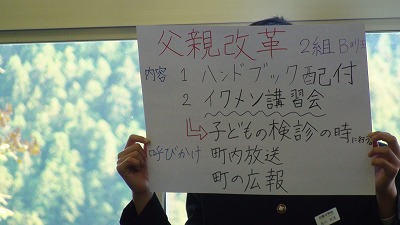 父親改革 2組 B
内容 1 ハンドブック配付
2 イクメン講習会
子どもの検診の時に行う
呼びかけ 町内放送
町の広報